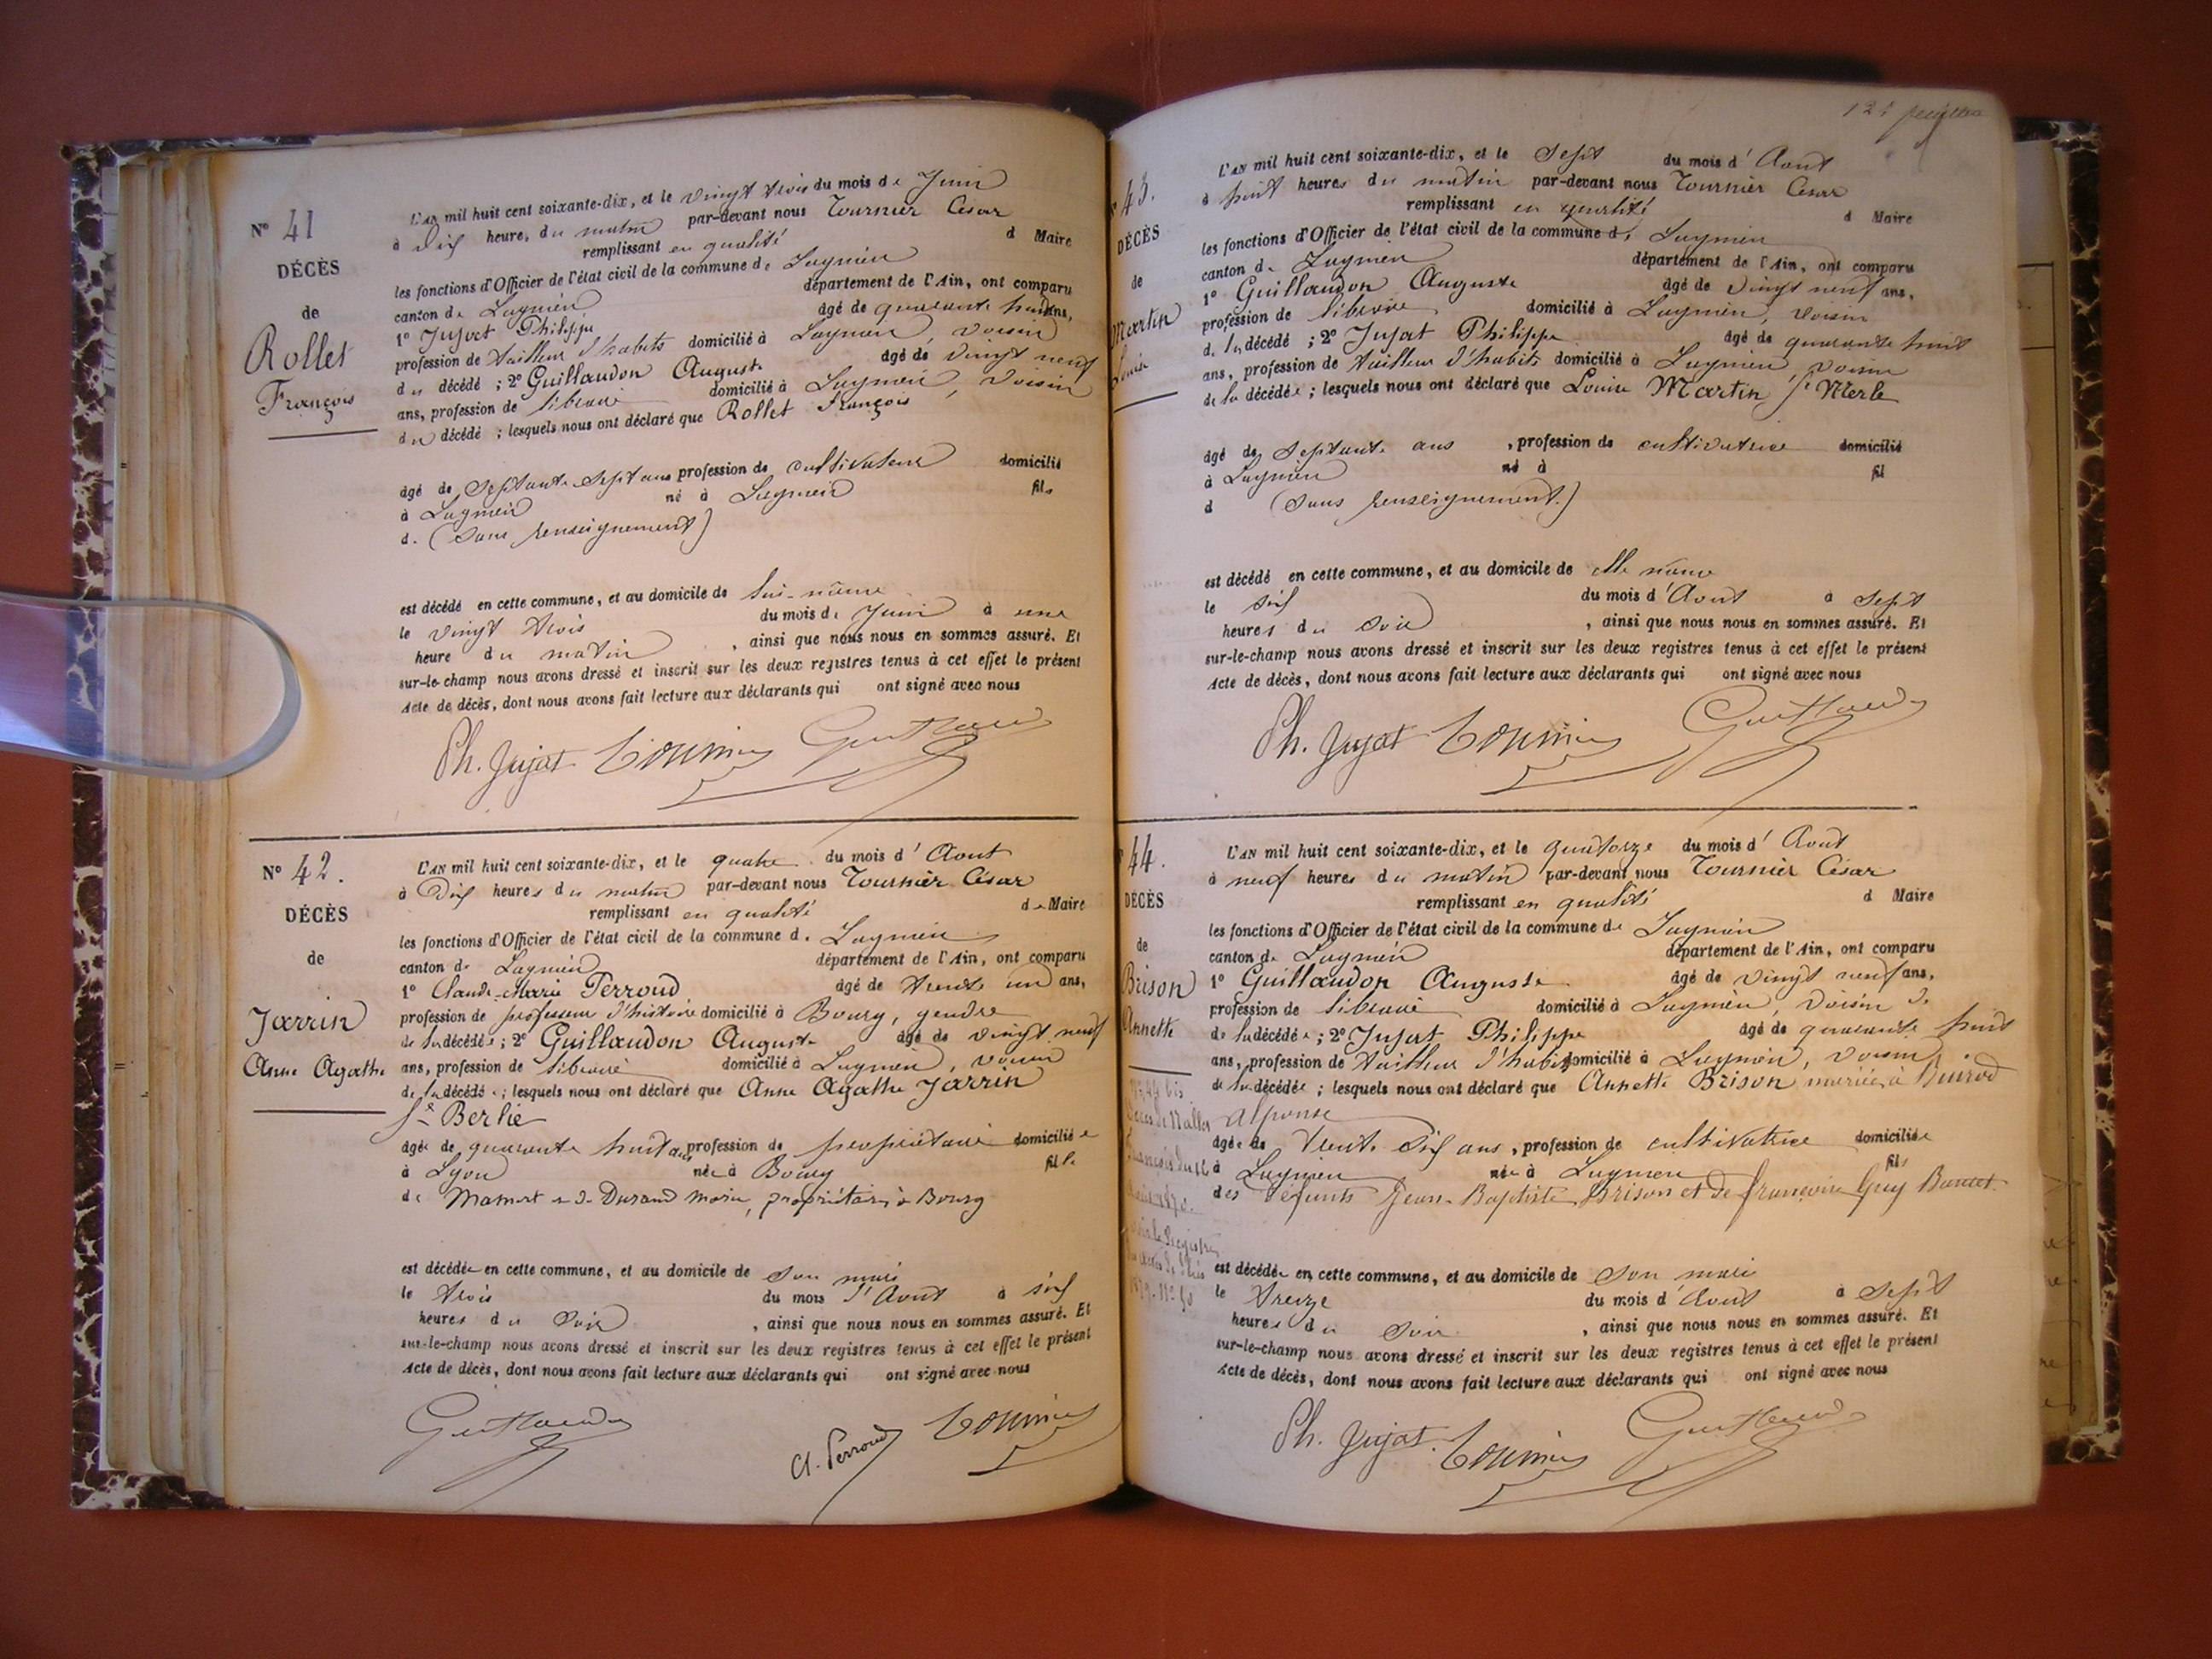 N° 41
DÉCÈS
de
Rollet
François
L'AN mil huit cent soixante-dix, et le vingt trois du mois de Juin
à dix heures du matin par-devant nous Tournier César
remplissant en qualité d Maire
les fonctions d'Officier de l'état civil de la commune de Lagnieu
canton de Lagnieu département de l'Ain, ont comparu
1° Jujat Philippe âgé de quarante huit ans,
profession de tailleur d'habits domicilié à Lagnieu, voisin
du décédé ; 2° Guillaudon Auguste âgé de vingt neuf
ans, profession de libraire domicilié à Lagnieu, voisin
du décédé ; lesquels nous ont déclaré que Rollet François
âgé de septante-sept ans profession de cultivateur domicilié
à Lagnieu né à Lagnieu fils
d. (Sans renseignement)
est décédé en cette commune, et au domicile de lui-même
le vingt trois du mois de Juin à une
heure du matin , ainsi que nous nous en sommes assuré. Et
sur-le-champ nous avons dressé et inscrit sur les deux registres tenus à cet effet le présent
acte de décès, dont nous avons fait lecture aux déclarants qui ont signé avec nous
Ph. Jujat Tournier
N° 42.
DÉCÈS
de
Jarrin
Anne Agathe
L'AN mil huit cent soixante-dix, et le quatre du mois d'Aout
à dix heures du matin par-devant nous Tournier César
remplissant en qualité de Maire
les fonctions d'Officier de l'état civil de la commune d. Lagnieu
canton de Lagnieu département de l'Ain, ont comparu
1° Claude-Marie Perroud âgé de trente un ans,
profession de professeur d'histoire domicilié à Bourg, gendre
de la décédée ; 2° Guillaudon Auguste âgé de vingt neuf
ans, profession de libraire domicilié à Lagnieu, voisin
de la décédée ; lesquels nous ont déclaré que Anne Agathe Jarrin
fe Berlie
âgée de quarante huit ans profession de propriétaire domiciliée
à Lyon née à Bourg fille
de Mamert et de Durand Marie, propriétaires à Bourg
est décédée en cette commune, et au domicile de son mari
le trois du mois d'Aout à six
heures du soir , ainsi que nous nous en sommes assuré. Et
sur-le-champ nous avons dressé et inscrit sur les deux registres tenus à cet effet le présent
acte de décès, dont nous avons fait lecture aux déclarants qui ont signé avec nous
Cl. Perroud Tournier
43.
DÉCÈS
de
Martin
Louise
L'AN mil huit cent soixante-dix, et le Sept du mois d'Aout
à huit heures du matin par-devant nous Tournier César
remplissant en qualité d Maire
les fonctions d'Officier de l'état civil de la commune de Lagnieu
canton de Lagnieu département de l'Ain, ont comparu
1° Guillaudon Auguste âgé de vingt neuf ans,
profession de libraire domicilié à Lagnieu, voisin
de la décédé ; 2° Jujat Philippe âgé de quarante huit
ans, profession de tailleur d'habits domicilié à Lagnieu, voisin
de la décédée ; lesquels nous ont déclaré que Louise Martin fe Merle
âgé de septante ans , profession de cultivatrice domicilié
à Lagnieu né à fil
d (Sans renseignement.)
est décédé en cette commune, et au domicile de elle même
le six du mois d'Aout à sept
heures du soir , ainsi que nous nous en sommes assuré. Et
sur-le-champ nous avons dressé et inscrit sur les deux registres tenus à cet effet le présent
acte de décès, dont nous avons fait lecture aux déclarants qui ont signé avec nous
Ph. Jujat Tournier
44.
DÉCÈS
de
Brison
Annette
L'AN mil huit cent soixante-dix, et le quatorze du mois d'Aout
à neuf heures du matin par-devant nous Tournier César
remplissant en qualité d Maire
les fonctions d'Officier de l'état civil de la commune de Lagnieu
canton de Lagnieu département de l'Ain, ont comparu
1° Guillaudon Auguste âgé de vingt neuf ans,
profession de libraire domicilié à Lagnieu, voisin de
de la décédée ; 2° Jujat Philippe âgé de quarante huit
ans, profession de tailleur d'habits domicilié à Lagnieu, voisin
de la décédée ; lesquels nous ont déclaré que Annette Brison mariée à
Alphonse
âgée de trente six ans, profession de cultivatrice domiciliée
à Lagnieu née à Lagnieu fil
des défunts Jean-Baptiste Brison et de Françoise Guy
est décédée en cette commune, et au domicile de son mari
le treize du mois d'Aout à sept
heures du soir , ainsi que nous nous en sommes assuré. Et
sur-le-champ nous avons dressé et inscrit sur les deux registres tenus à cet effet le présent
acte de décès, dont nous avons fait lecture aux déclarants qui ont signé avec nous
Ph. Jujat. Tournier